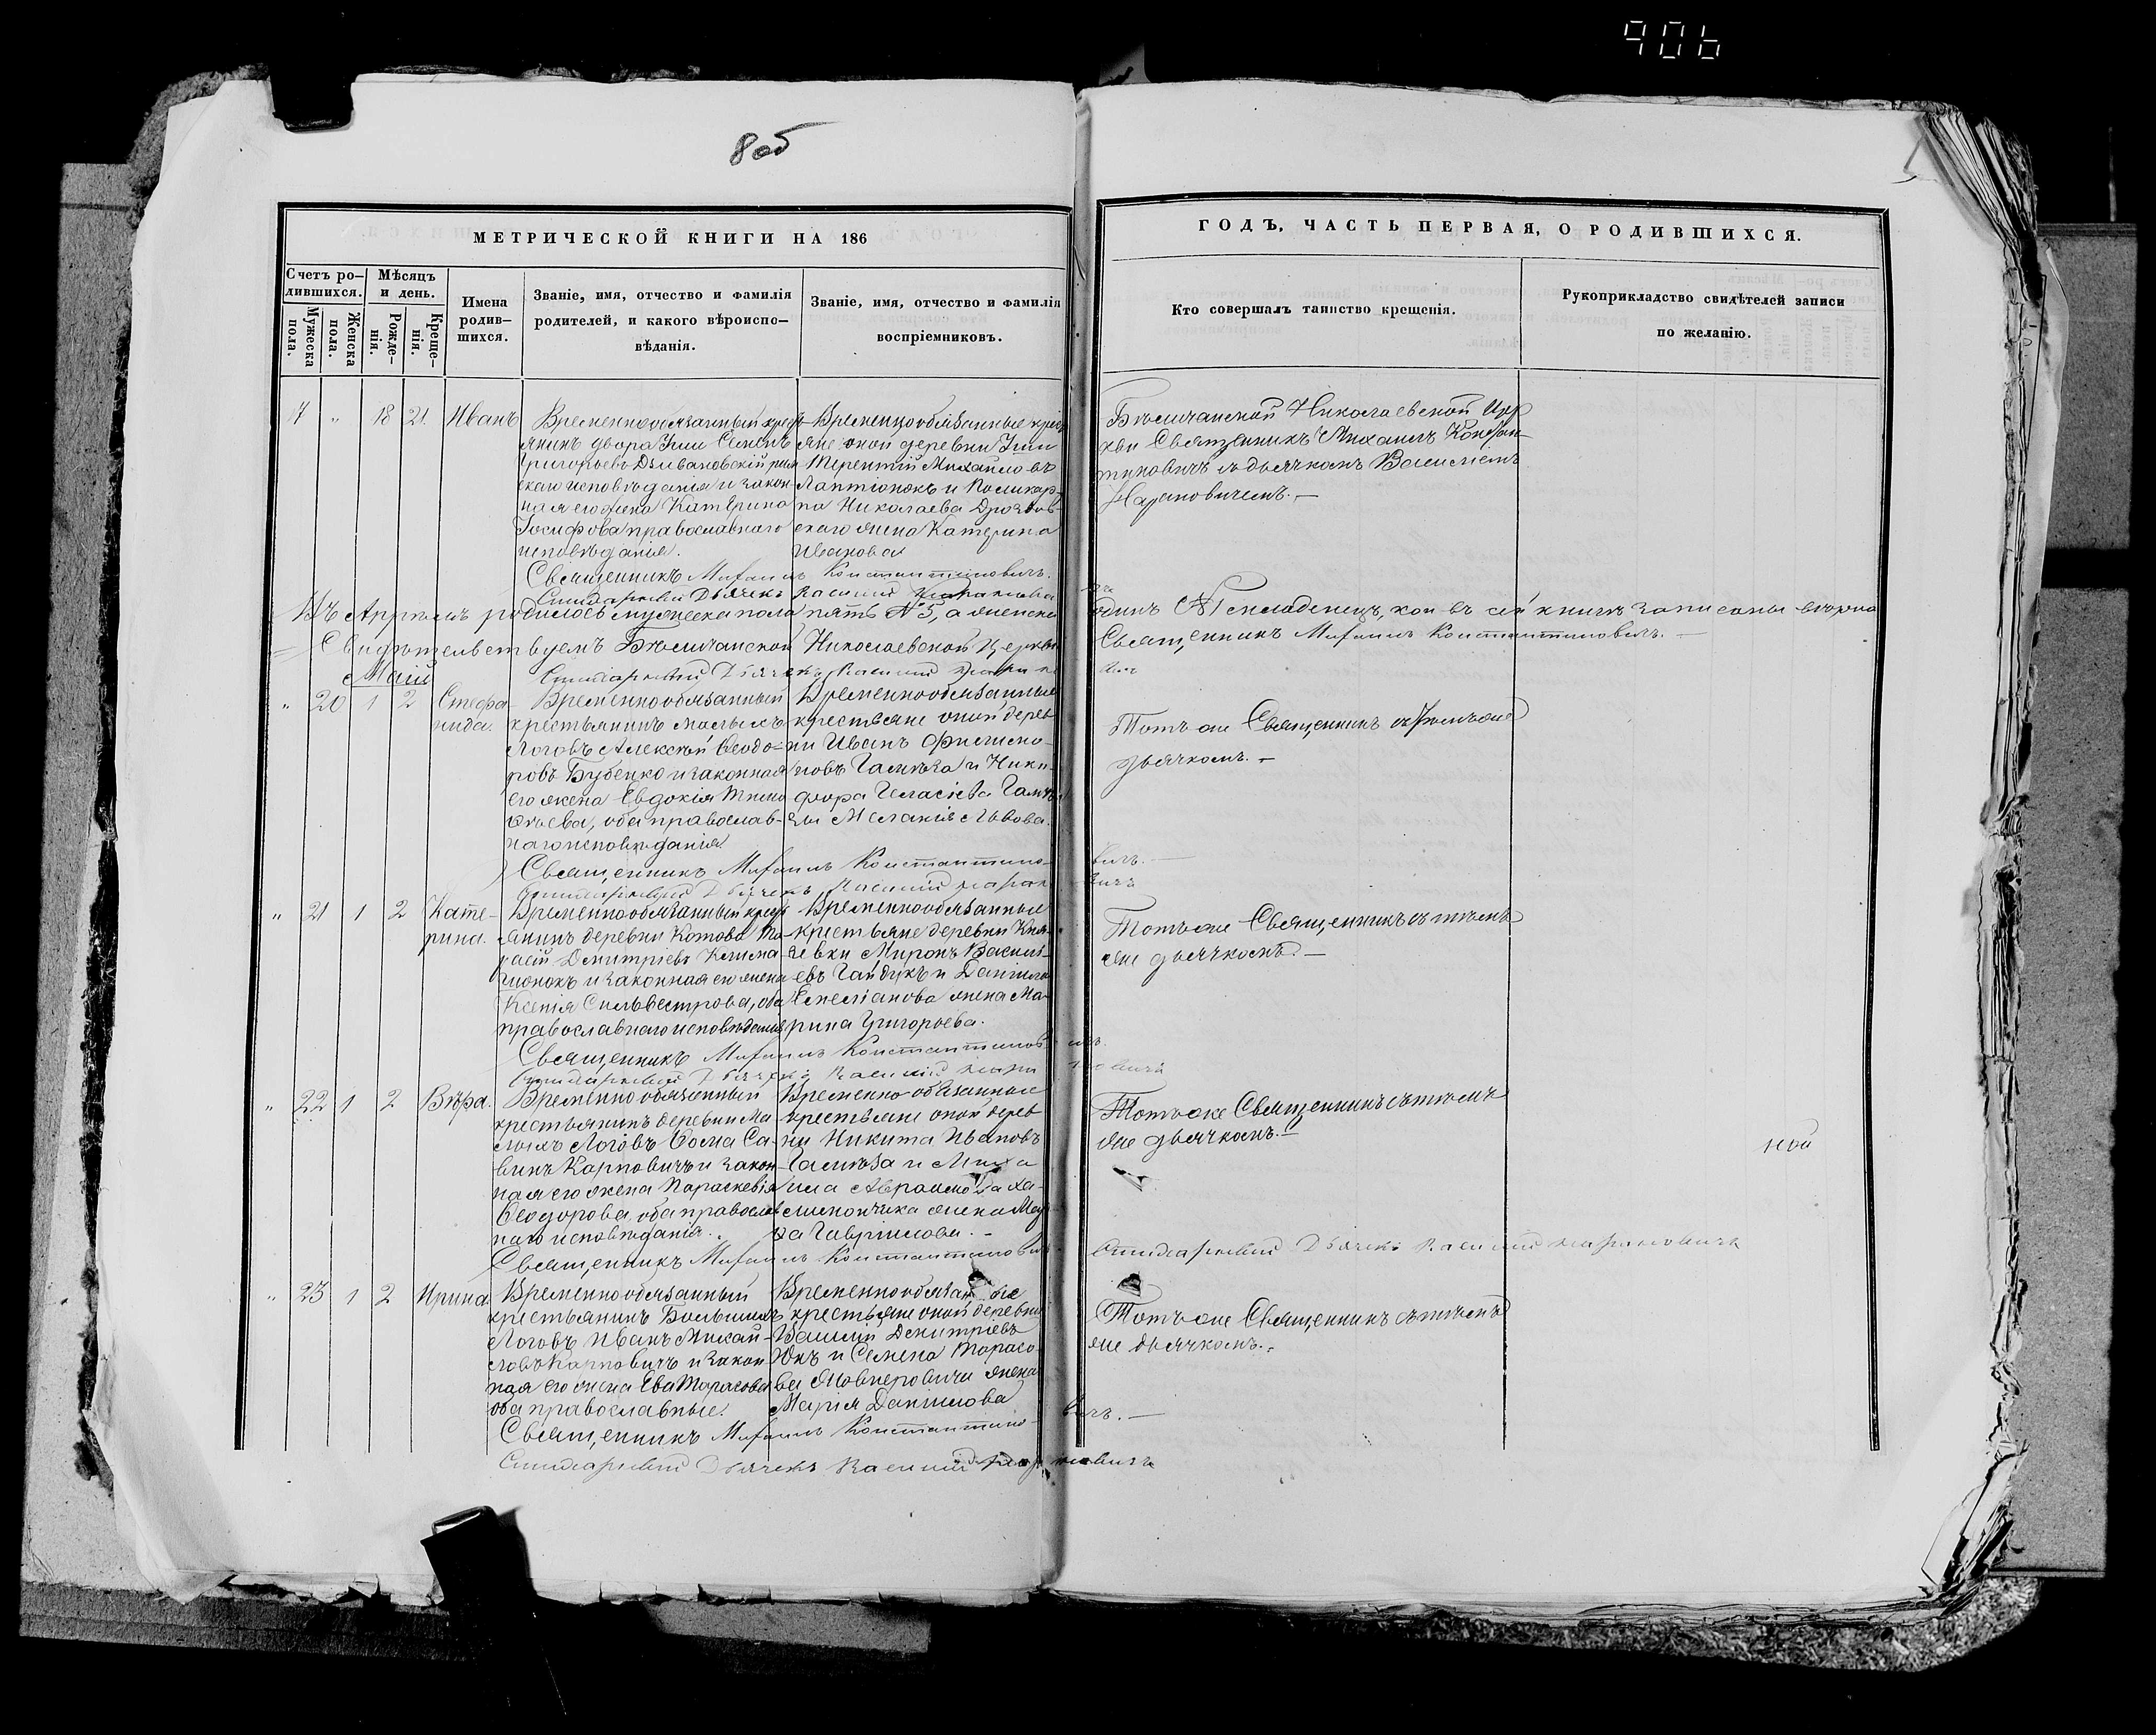 906
8 об
МЕТРИЧЕСКОЙ КНИГИ НА 186
ГОДЪ, ЧАСТЬ ПЕРВАЯ, О РОДИВШИХСЯ.
Счетъ ро-
дившихся.
Мужеска пола.
Женска пола.
Мѣсяцъ
и день.
Рожде-
нія.
Креще-
нія.
Имена
родив-
шихся.
Званіе, имя, отчество и фамилія
родителей, и какого вѣроиспо-
вѣданія.
Званіе, имя, отчество и фамилія
воспріемниковъ.
Кто совершалъ таинство крещенія.
Рукоприкладство свидѣтелей записи
по желанію.
17 " 18 21 Иванъ
Временнообязанный крест
янинъ двора Семенъ
Григорьевъ
скаго исповѣданія и закон-
ная его жена Катерина
Іосифова православнаго
исповѣданія.
Временнообязанные крест
яне оной деревни
Терентій Михайловъ
Лаптіонокъ и Поликар-
па Николаева Дроздов-
скаго жена Катерина
Иванова
Николаевской Цер
кви Священникъ Михаилъ Констан-
тиновичъ съ дьячкомъ Василіемъ
Священникъ Михаилъ Константиновичъ.
Дьячекъ Василій
Въ Апрѣлѣ родилось мужеска пола пять № 5, а женска
одинъ № 1 младенецъ, кои въ сей книгѣ записаны вѣрно
Свидѣтельствуемъ Николаевской Церкви
Священникъ Михаилъ Константиновичъ. —
Дьячекъ Василій
Май
" 20 1 2 Стефа-
нида.
Временнообязанный
крестьянинъ Малыхъ
Логовъ Алексѣй Ѳеодо-
ровъ Бубенко и законная
его жена Евдокія Тимо
ѳеева, оба православ-
наго исповѣданія
Временнообязанные
крестьяне оной дерев
ни Иванъ Филимо-
новъ Галиѣза и Ники-
фора Геласіева
Меланія Львова.
Тотъ же Священникъ съ тѣмъ же
дьячкомъ. —
Священникъ Михаилъ Константино-
вичъ. —
Дьячекъ Василій
" 21 1 2 Кате-
рина.
Временнообязанный крест
янинъ деревни Котова Та-
расій Димитріевъ Клима-
шонокъ и законная его жена
Ксенія Сильвестрова, оба
православнаго исповѣданія
Временнообязанные
крестьяне деревни Кня-
зевки Миронъ Василь-
евъ Гайдукъ и Даніила
Емеліанова жена Ма-
рина Григорьева.
Тотъ же Священникъ съ тѣмъ
же дьячкомъ. —
Священникъ Михаилъ Константинов
ичъ.
Дьячекъ Василій
" 22 1 2 Вѣра.
Временнообязанный
крестьянинъ деревни Ма
лыхъ Логовъ Ѳома Са-
винъ Карповичъ и закон-
ная его жена Параскевія
Ѳеодорова, оба православ
наго исповѣданія.
Временнообязанные
крестьяне оной дерев
ни Никита Ивановъ
Галиѣза и Миха
ила Аврамова Ха-
жена Мар
Гавріилова. —
Тотъ же Священникъ съ тѣмъ
же дьячкомъ. —
ной
Священникъ Михаилъ Константинович
Дьячекъ Василій
" 23 1 2 Ирина.
Временнообязанный
крестьянинъ Большихъ
Логовъ Иванъ Михай-
ловъ Карповичъ и закон
ная его жена Ева Тарасова
оба православные.
крестьяне оной деревни
Василій Димитріевъ
Юкъ и Семена Тарасо-
ва жена
Марія Даніилова
Тотъ же Священникъ съ тѣмъ
же дьячкомъ. —
Священникъ Михаилъ Константино-
вичъ. —
Дьячекъ Василій